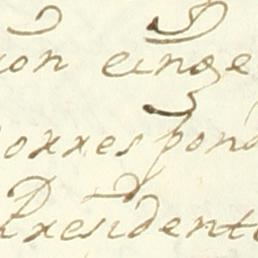 ion einge
Correspond
President